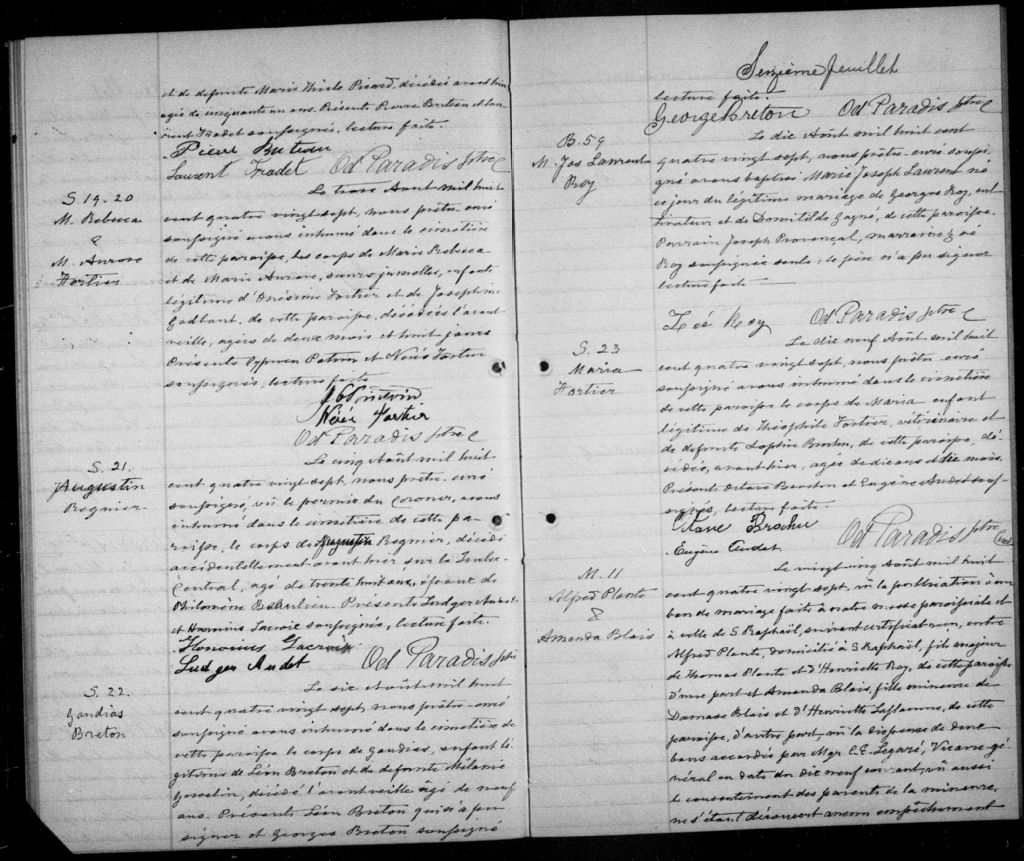 et de defunte Marie Picard, décédée avant hier
agée de cinquante un ans. Présents Pierre Buteau et Lau-
rent Fradet soussignés, lecture faite.
Pierre Buteau
Laurent Fradet Od Paradis ptre
S. 19-20
M. Rebecca
&
M. Aurore
Fortier
Le trois Août mil huit
cent quatre vingt sept, nous prêtre curé
soussigné avons inhumé dans le cimetière
de cette paroisse, les corps de Marie Rebecca
et de Marie Aurore, sœurs jumelles, enfants
légitimes d'Onésime Fortier et de Josephine
de cette paroisse, décédées l'avant
veille, agées de deux mois et huit jours
Présents et Nérée Fortier
soussignés, lecture faite
Nérée Fortier
Od Paradis ptre
S. 21.
Augustin
Regnier
Le cinq Août mil huit
cent quatre vingt sept, nous prêtre curé
soussigné, vu le permis du Coroner, avons
inhumé dans le cimetière de cette pa-
roisse, le corps de Augustin Regnier, décédé
accidentellement avant hier sur la
Central, agé de trente huit ans, époux de
Philomène Beaulieu. Présents Ludger Audet
et Lacroix soussignés, lecture faite.
Lacroix
Ludger Audet Od Paradis ptre
S. 22.
Gaudias
Breton
Le six Août mil huit
cent quatre vingt sept, nous prêtre curé
soussigné avons inhumé dans le cimetière de
cette paroisse le corps de Gaudias, enfant lé-
gitime de Léon Breton et de defunte Mélanie
Gosselin, décédé l'avant veille agé de neuf
ans. Présents Léon Breton qui n'a pu
signer et Georges Breton soussigné
Seizième feuillet
lecture faite.
George Breton Od Paradis ptre
B. 59
M. Jos Laurent
Roy
Le dix Août mil huit cent
quatre vingt sept, nous prêtre curé soussi-
gné avons baptisé Marie Joseph Laurent né
ce jour du légitime mariage de Georges Roy, cul
tivateur et de Domitilde Gagné, de cette paroisse.
Parrain Joseph Provençal, marraine Zoé
Roy soussignée seule : le père n'a pu signer
lecture faite
Zoé Roy Od Paradis ptre
S. 23
Maria
Fortier
Le dix neuf Août mil huit
cent quatre vingt sept, nous prêtre curé
soussigné avons inhumé dans le cimetière
de cette paroisse le corps de Maria enfant
légitime de Théophile Fortier, vétérinaire et
de defunte Sophie de cette paroisse, dé-
cédée, avant hier, agée de dix ans et dix mois.
Présents Octave et Eugène Audet sous-
signés, lecture faite
Octave Brochu
Eugène Audet Od Paradis ptre
Curé
M. 11
Alfred Plante
&
Amanda Blais
Le vingt cinq Août mil huit
cent quatre vingt sept, vu la publication d'un
ban de mariage faite à notre messe paroissiale et
à celle de S. Raphaël, suivant certificat reçu, entre
Alfred Plante, domicilié à S. Raphaël, fils majeur
de Thomas Plante et d'Henriette Roy, de cette paroisse
d'une part et Amanda Blais, fille mineure de
Damase Blais et d'Henriette Laflamme, de cette
paroisse, d'autre part, vu la dispense de deux
bans accordée par Mgr C. E. Legaré, Vicaire gé-
néral en date du dix neuf courant, vu aussi
le consentement des parents de la mineure,
ne s'étant découvert aucun empêchement